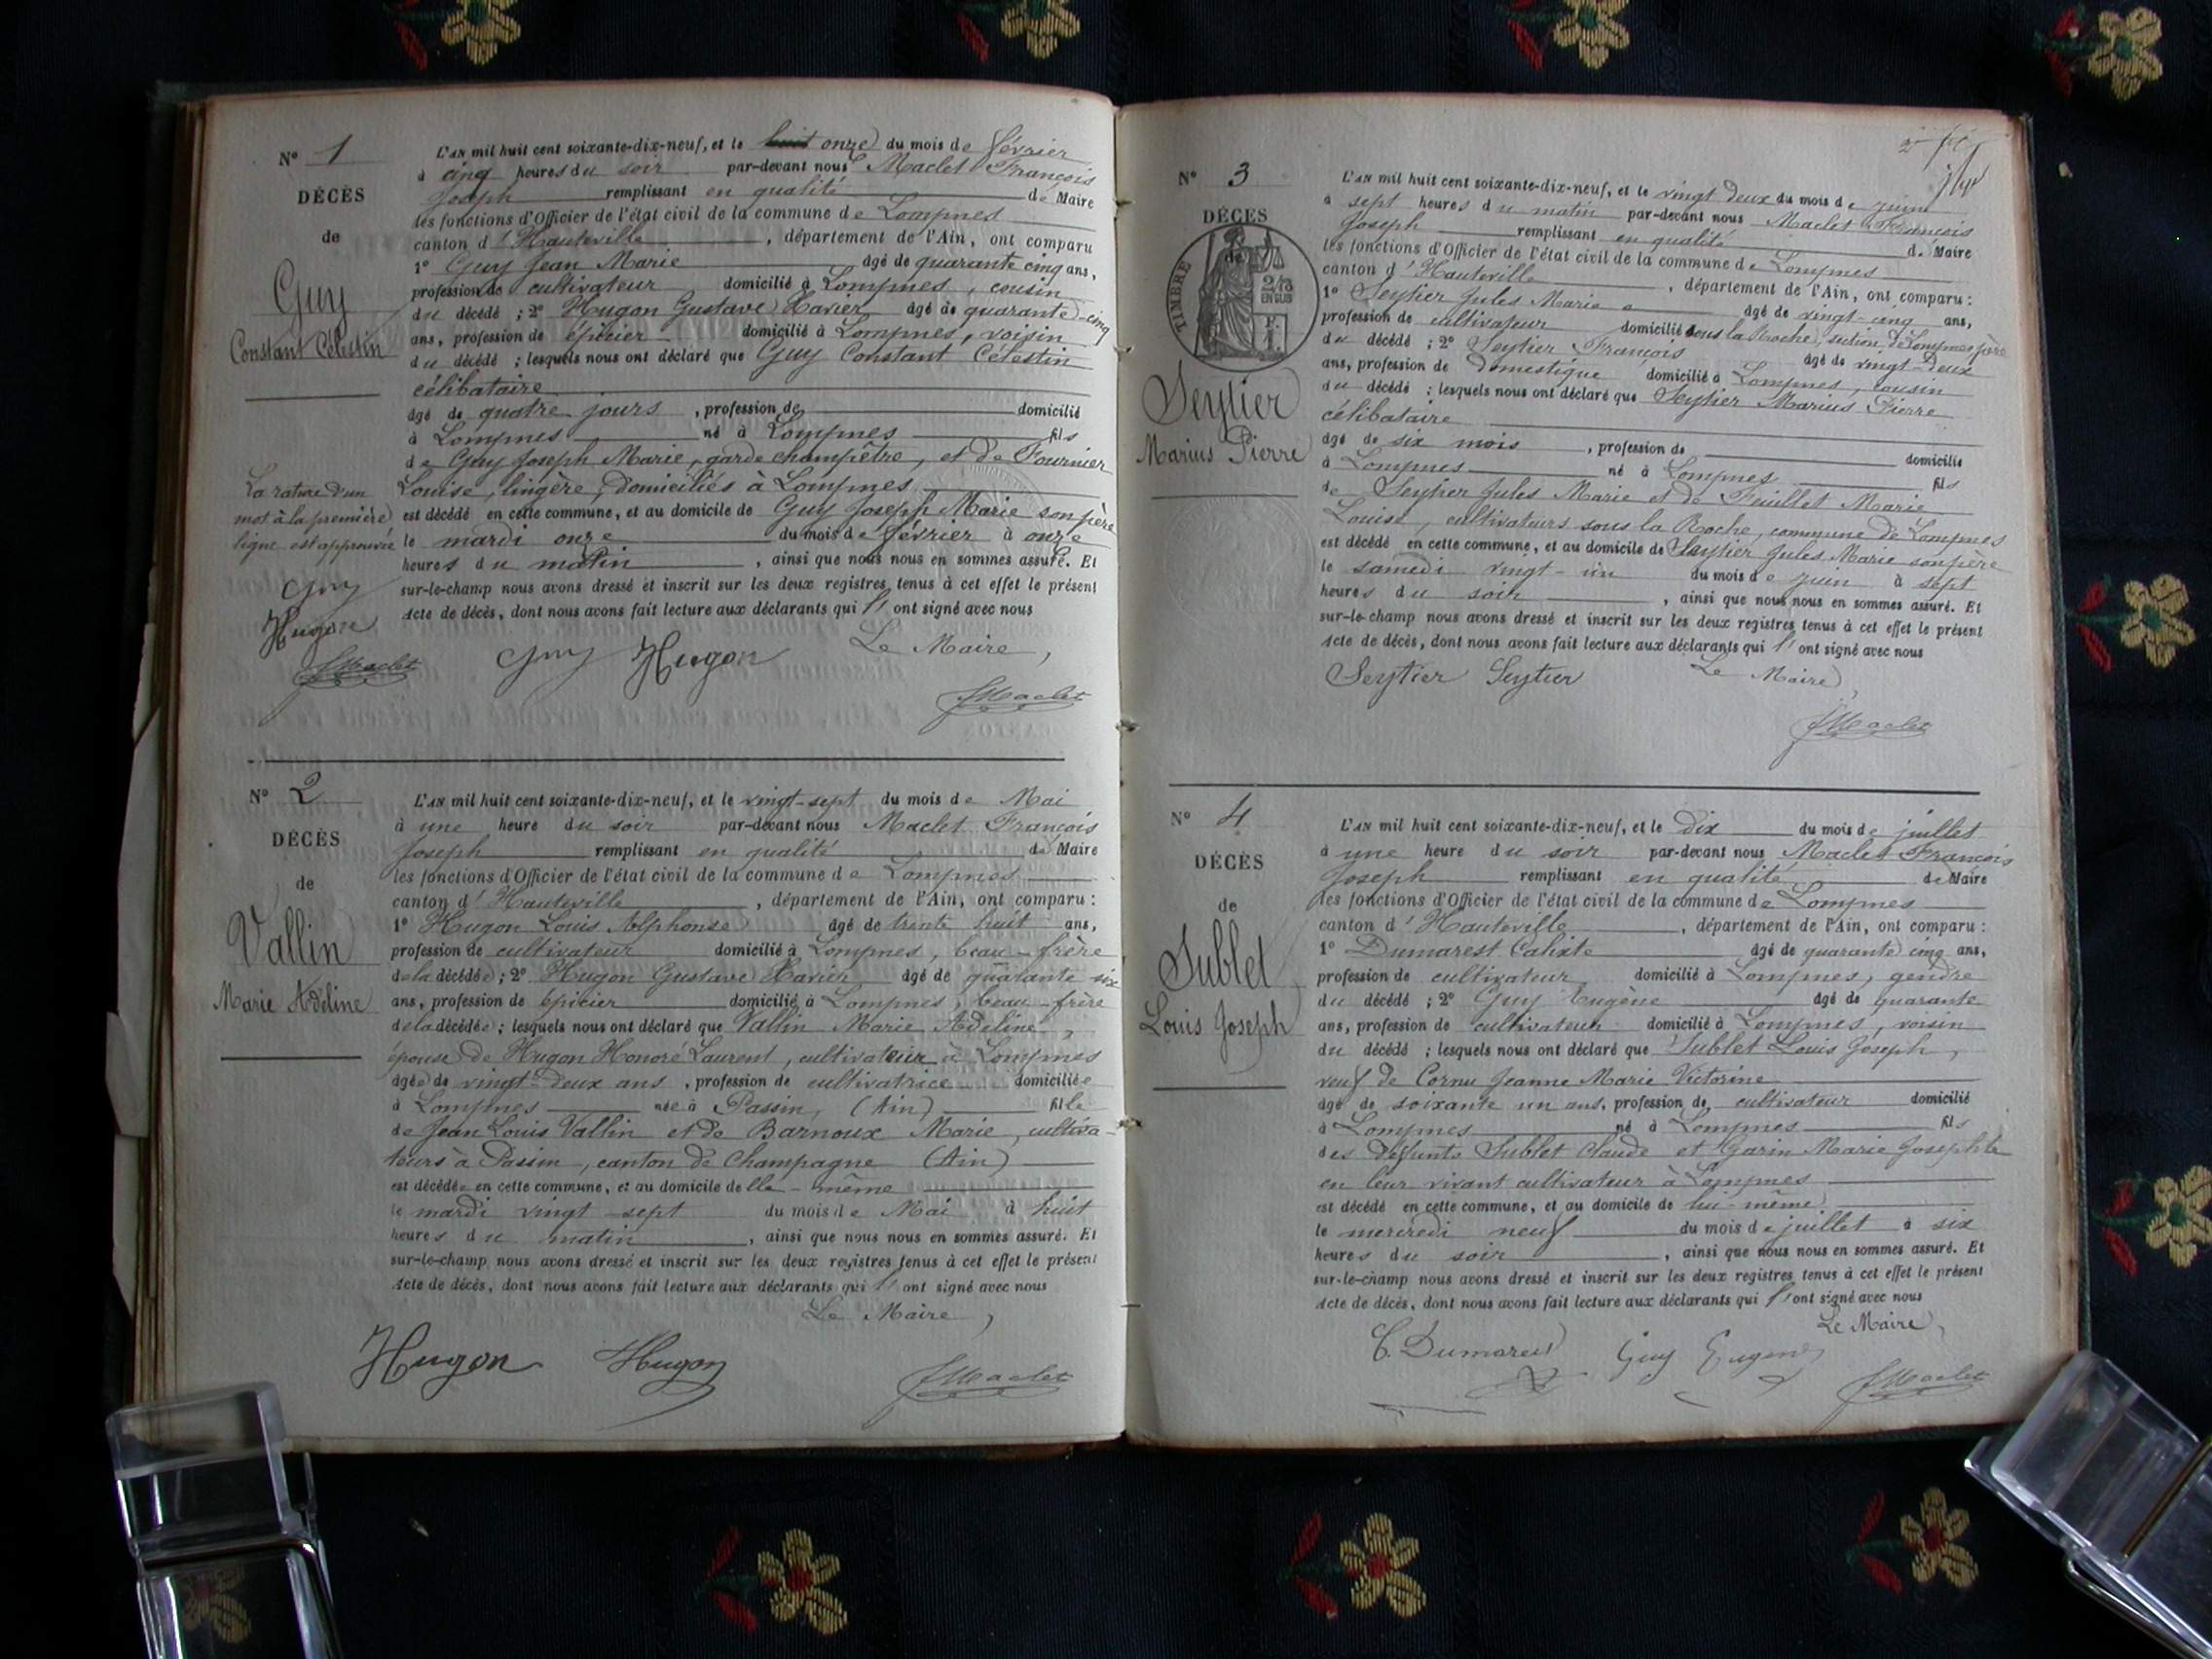 N° 1
DÉCÈS
de
Guy
Constant Célestin
La rature d'un
mot à la première
ligne est approuvée
Guy
Hugon
JMaclet
L'AN mil huit cent soixante-dix-neuf, et le huit onze du mois de février
à cinq heures du soir par-devant nous Maclet François
Joseph remplissant en qualité de Maire
les fonctions d'Officier de l'état civil de la commune de Lompnes
canton d'Hauteville, département de l'Ain, ont comparu
1° Guy Jean Marie âgé de quarante cinq ans,
profession de cultivateur domicilié à Lompnes, cousin
du décédé ; 2° Hugon Gustave Xavier âgé de quarante-cinq
ans, profession de épicier domicilié à Lompnes, voisin
du décédé ; lesquels nous ont déclaré que Guy Constant Célestin
célibataire
âgé de quatre jours, profession de domicilié
à Lompnes né à Lompnes fils
de Guy Joseph Marie, garde champêtre, et de Fournier
Louise, lingère, domiciliés à Lompnes
est décédé en cette commune, et au domicile de Guy Joseph Marie son père
le mardi onze du mois de février à onze
heures du matin, ainsi que nous nous en sommes assuré. Et
sur-le-champ nous avons dressé et inscrit sur les deux registres tenus à cet effet le présent
acte de décès, dont nous avons fait lecture aux déclarants qui l'ont signé avec nous
Le Maire,
Guy Hugon
JMaclet
N° 2
DÉCÈS
de
Vallin
Marie Adéline
L'AN mil huit cent soixante-dix-neuf, et le vingt-sept du mois de Mai
à une heure du soir par-devant nous Maclet François
Joseph remplissant en qualité de Maire
les fonctions d'Officier de l'état civil de la commune de Lompnes
canton d'Hauteville, département de l'Ain, ont comparu :
1° Hugon Louis Alphonse âgé de trente huit ans,
profession de cultivateur domicilié à Lompnes, beau-frère
de la décédée ; 2° Hugon Gustave Xavier âgé de quarante six
ans, profession de épicier domicilié à Lompnes, beau-frère
de la décédée ; lesquels nous ont déclaré que Vallin Marie Adéline,
épouse de Hugon Honoré Laurent, cultivateur à Lompnes
âgée de vingt-deux ans, profession de cultivatrice domiciliée
à Lompnes née à Passin, (Ain) fille
de Jean Louis Vallin et de Barnoux Marie, cultiva-
teurs à Passin, canton de Champagne (Ain)
est décédée en cette commune, et au domicile de lle-même
le mardi vingt-sept du mois de Mai à huit
heures du matin, ainsi que nous nous en sommes assuré. Et
sur-le-champ nous avons dressé et inscrit sur les deux registres tenus à cet effet le présent
acte de décès, dont nous avons fait lecture aux déclarants qui l'ont signé avec nous
Le Maire,
Hugon Hugon
JMaclet
N° 3
DÉCÈS
de
TIMBRE
2/10
EN SUS
Seytier
Marius Pierre
L'AN mil huit cent soixante-dix-neuf, et le vingt deux du mois de juin
à sept heures du matin par-devant nous Maclet François
Joseph remplissant en qualité de Maire
les fonctions d'Officier de l'état civil de la commune de Lompnes
canton d'Hauteville, département de l'Ain, ont comparu :
1° Seytier Jules Marie âgé de vingt-cinq ans,
profession de cultivateur domicilié sous la Roche, section de Lompnes père
du décédé ; 2° Seytier François âgé de vingt-deux
ans, profession de Domestique domicilié à Lompnes, cousin
du décédé ; lesquels nous ont déclaré que Seytier Marius Pierre
célibataire
âgé de six mois, profession de domicilié
à Lompnes né à Lompnes fils
de Seytier Jules Marie et de Feuillet Marie
Louise, cultivateurs sous la Roche, commune de Lompnes
est décédé en cette commune, et au domicile de Seytier Jules Marie son père
le samedi vingt-un du mois de juin à sept
heures du soir, ainsi que nous nous en sommes assuré. Et
sur-le-champ nous avons dressé et inscrit sur les deux registres tenus à cet effet le présent
acte de décès, dont nous avons fait lecture aux déclarants qui l'ont signé avec nous
Seytier Seytier Le Maire,
JMaclet
N° 4
DÉCÈS
de
Sublet
Louis Joseph
L'AN mil huit cent soixante-dix-neuf, et le dix du mois de juillet
à une heure du soir par-devant nous Maclet François
Joseph remplissant en qualité de Maire
les fonctions d'Officier de l'état civil de la commune de Lompnes
canton d'Hauteville, département de l'Ain, ont comparu :
1° Dumarest Calixte âgé de quarante cinq ans,
profession de cultivateur domicilié à Lompnes, gendre
du décédé ; 2° Guy Eugène âgé de quarante
ans, profession de cultivateur domicilié à Lompnes, voisin
du décédé ; lesquels nous ont déclaré que Sublet Louis Joseph,
veuf de Cornu Jeanne Marie Victorine
âgé de soixante un ans, profession de cultivateur domicilié
à Lompnes né à Lompnes fils
des défunts Sublet Claude et Garin Marie Josephte
en leur vivant cultivateur à Lompnes
est décédé en cette commune, et au domicile de lui-même
le mercredi neuf du mois de juillet à six
heures du soir, ainsi que nous nous en sommes assuré. Et
sur-le-champ nous avons dressé et inscrit sur les deux registres tenus à cet effet le présent
acte de décès, dont nous avons fait lecture aux déclarants qui l'ont signé avec nous
Le Maire,
C. Dumarest Guy Eugène
JMaclet